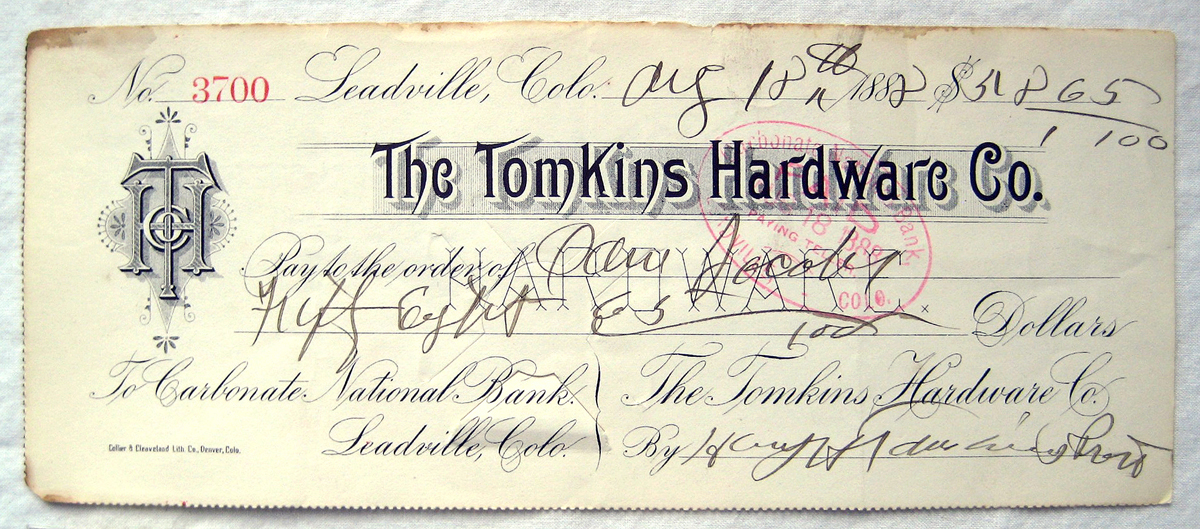 No. 3700 Leadville, Colo. Aug 18th 1888 $ 58 65/100
The Tomkins Hardware Co.
Pay to the order of Sam Jacoby
Fifty Eight 65/100 Dollars
HARDWARE
Carbonate Bank
PAID
18 1888
PAYING TELLER
COLO.
To Carbonate National Bank. The Tomkins Hardware Co.
Leadville, Colo. By
Collier & Cleaveland Lith. Co., Denver, Colo.